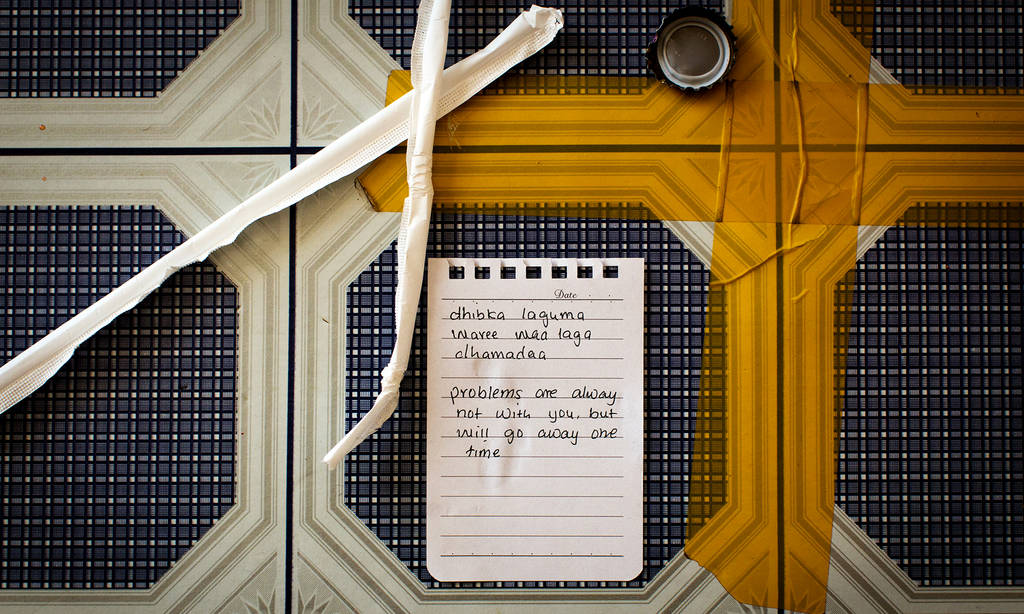 Date
dhibka laguma
waree waa laga
dhamadaa
problems are alway
not with you, but
will go away one
time